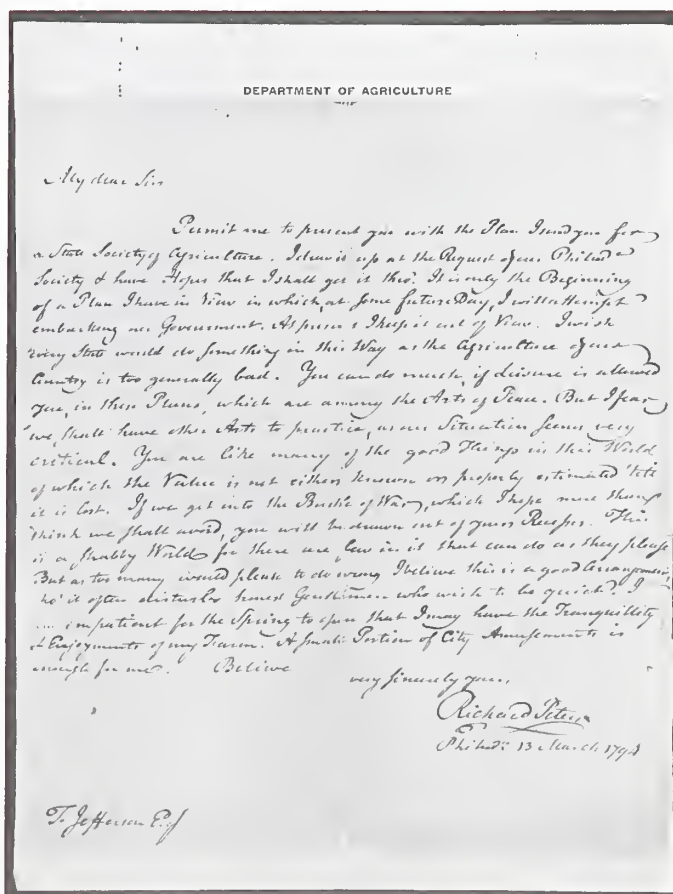 DEPARTMENT OF AGRICULTURE
My dear Sir
Permit me to present you with the Plan I send you for
a State Society of Agriculture. I drew it up at the Request of our Philad.ª
Society & have Hopes that I shall get it thro'. It is only the Beginning
of a Plan I have in View in which, at some future Day, I will attempt
embarking our Government. At present I keep it out of View. I wish
every State would do something in this Way as the Agriculture of our
Country is too generally bad. You can do much, if Leisure is allowed
you, in these Plans, which are among the Arts of Peace. But I fear
we shall have other Arts to practice, as our Situation seems very
critical. You are like many of the good Things in this World
of which the Value is not either known or properly estimated 'till
it is lost. If we get into the Bustle of War, which I hope more than I
think we shall avoid, you will be drawn out of your Recess. This
is a shabby World for there are few in it that can do as they please
But as too many would please to do wrong I believe this is a good Arrangement,
tho' it often disturbs honest Gentlemen who wish to be quiet. I
.... impatient for the Spring to open that I may have the Tranquillity
& Enjoyments of my Farm. A small Portion of City Amusements is
enough for me. Believe
very sincerely yours,
Richard Peters
Philad.ª 13 March 1794
T. Jefferson Esq